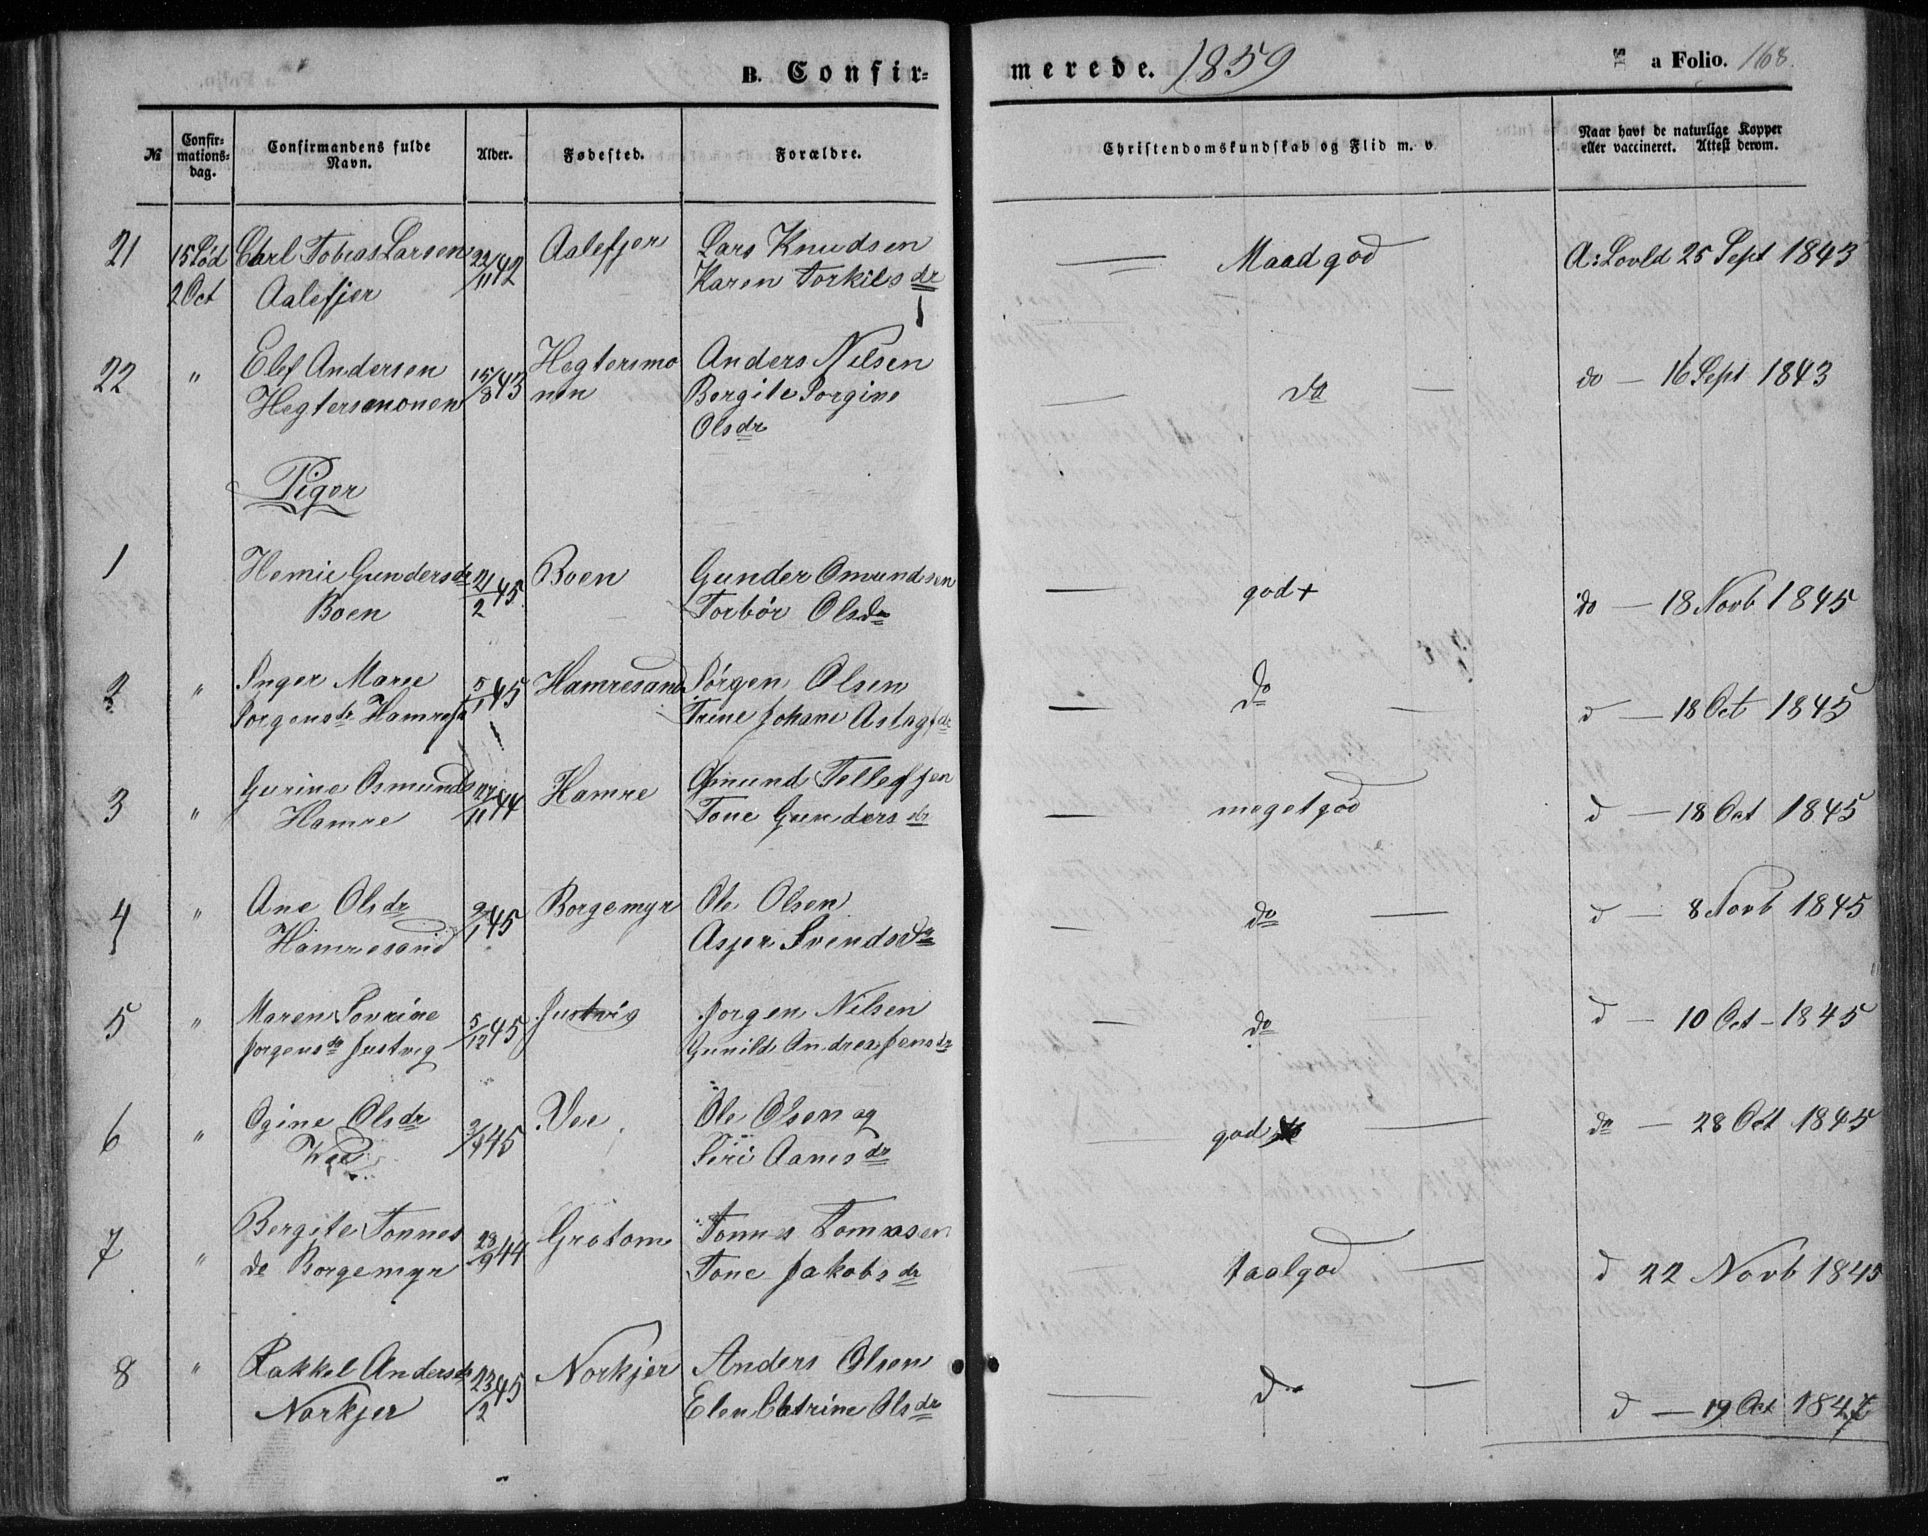 B. Confirmerede. 1859 a Folio. 168.
№ Confirmationsdag. Confirmandens fulde Navn. Alder. Fødested. Forældre. Christendomskundskab og Flid m. v. Naar havt de naturlige Kopper eller vaccineret. Attest derom.
21 15 Sød Carl Tobias Larsen 22/11 42 Aalefjer Lars Knudsen — Maadgod A: Lovld 25 Sept 1843
2 Oct Aalefjer Karen Torkilsdr
22 " Elef Andersen 15/8 43 Hegtersmo Anders Nilsen — do — do — 16 Sept 1843
Hegtersmonen nen Bergite Jorgine
Olsdr
Piger
1 Hemie Gundersdr 21/2 45 Boen Gunder Omundsen — god + do — 18 Novb 1845
Boen Torbør Olsdr
2 " Inger Marie 5/1 45 Hamresand Jørgen Olsen — do — d — 18 Oct 1845
Jorgensdr Hamresa Trine Johane
3 " Gurine Osmunds 27/11 44 Hamre Osmund Tellefsen — meget god d — 18 Oct 1845
Hamre Tone Gundersdr
4 " Ane Olsdr 9/1 45 Borgemyr Ole Olsen — do — d — 8 Novb 1845
Hamresand Asjer Svendsdr
5 " Maren Sovrine 5/12 45 Justvig Jorgen Nilsen — do d — 10 Oct — 1845
Jorgensdr Justvig Gunild Andrea Jensdr
6 " Ogine Olsdr 45 Vee Ole Olsen og god — do — 28 Oct 1845
Wee Siri Aanesdr
7 " Bergite Tonnes 28/9 44 Grotom Tonnes Tomasen taalgod — d 22 Novb 1845
dr Borgemyr Tone Jakobsdr
8 " Rakkel Andersdr 23/2 45 Norkjer Anders Olsen — do — d — 19 Oct 1847
Norkjer Elen Catrine Olsdr